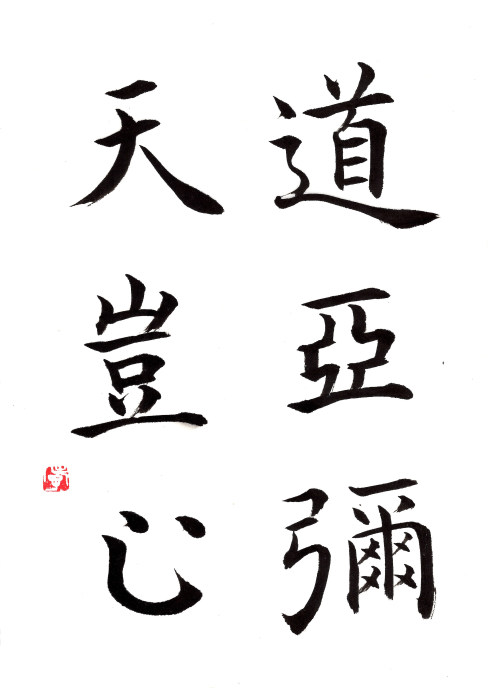 道亞彌
天豈心